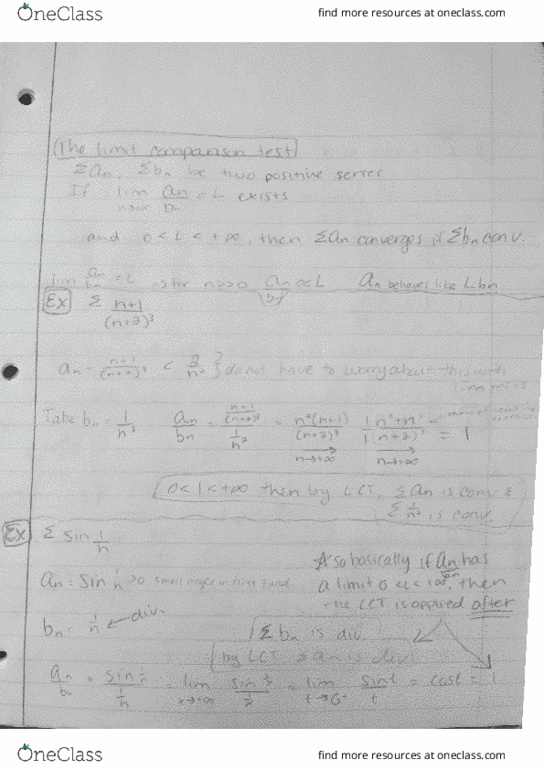 OneClass
find more resources at oneclass.com
The limit comparison test
Σan, Σbn be two positive series
If lim n→∞ an/bn = L exists
and 0 < L < +∞, then Σan converges if Σbn conv.
lim an/bn = L ⇒ for n>>0 an/bn ≈ L an behaves like L bn
Ex Σ (n+1)/(n+2)³
an = (n+1)/(n+2)³ < 2/n² } do not have to worry about this with
Take bn = 1/n² an/bn = ((n+1)/(n+2)³)/(1/n²) = n²(n+1)/(n+2)³ n→+∞ 1/1 (n³+n²)/(n+2)³ n→+∞ = 1
0 < 1 < +∞ then by LCT, Σan is conv &
Σ 1/n² is conv.
Ex Σ sin 1/n
* so basically if an/bn has
an = sin 1/n >0 small angle in first
a limit 0 < L < +∞, then
the LCT is applied after
bn = 1/n ← div.
Σbn is div.
by LCT Σan is div.
an/bn = (sin 1/n)/(1/n) = lim x→+∞ (sin 1/x)/(1/x) = lim t→0+ sin t/t = cos t = 1
OneClass
find more resources at oneclass.com